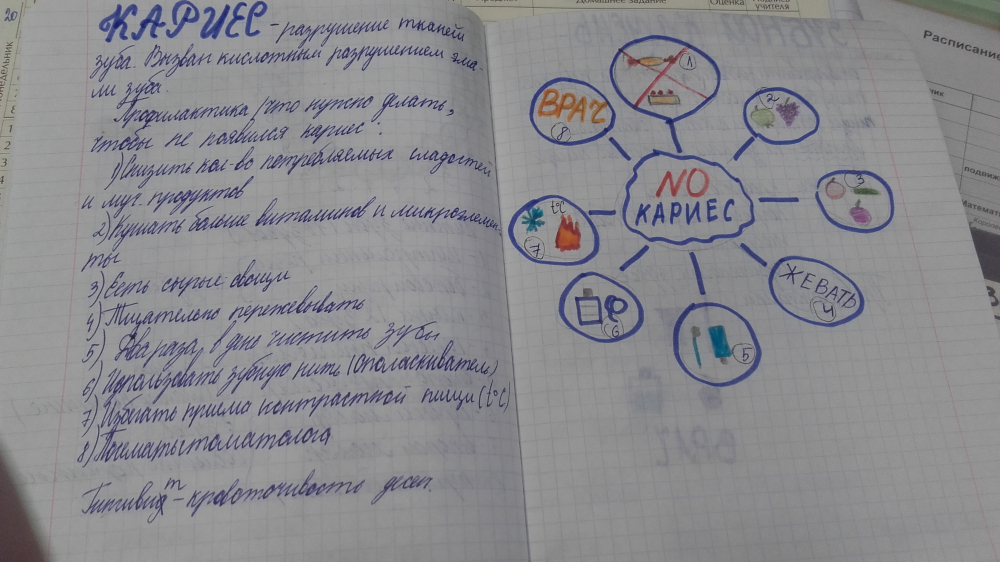 20
Домашнее задание
Оценка
Подпись
учителя
КАРИЕС - разрушение тканей
зуба. Вызван кислотным разрушением эма-
ли зуба.
Профилактика /что нужно делать,
чтобы не появился кариес:
1) Снизить кол-во потребляемых сладостей
и муч. продуктов
2) Кушать больше витаминов и микроэлемен-
ты
3) Есть сырые овощи
4) Тщательно пережевывать
5) Два раза в день чистить зубы
6) Использовать зубную нить (Ополаскиватель)
7) Избегать приема контрастной пищи (t°C)
8)
Гингивит - кровоточивость десен.
1
2
3
ЖЕВАТЬ
4
5
6
t°C
7
ВРАЧ
8
NO
КАРИЕС
Расписание